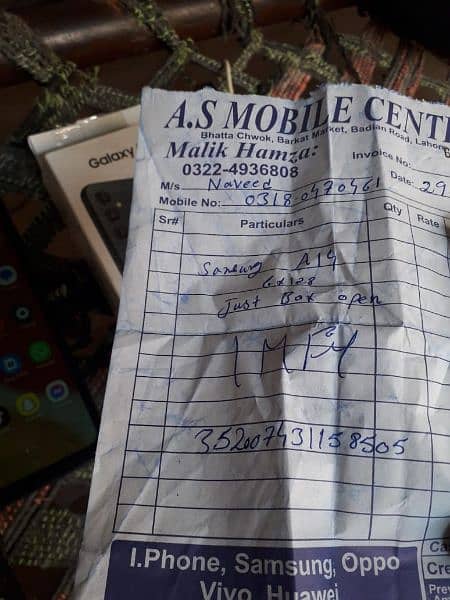 Galaxy
A.S MOBILE CENT
Bhatta Chwok, Barkat Market, Badian Road, Lahore
Malik Hamza:
0322-4936808
Invoice No:
M/s Naveed
Date: 29
Mobile No: 0318-0470461
Sr# Particulars Qty Rate
Samsung A14
6x128
Just Box open
352007431158505
I.Phone, Samsung, Oppo
Vivo, Huawei
Ca
Cre
Prev